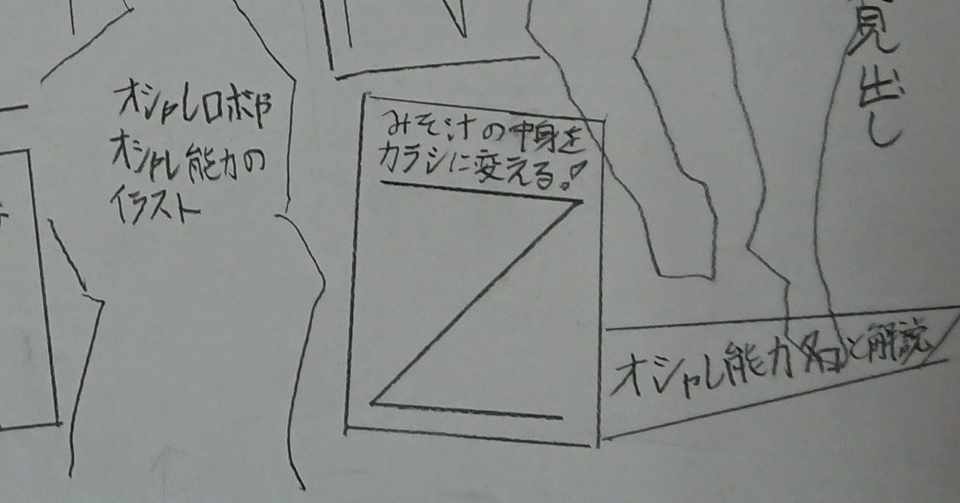 見出し
オシャレロボや
オシャレ能力の
イラスト
みそ汁の中身を
カラシに変える!
オシャレ能力名と解説